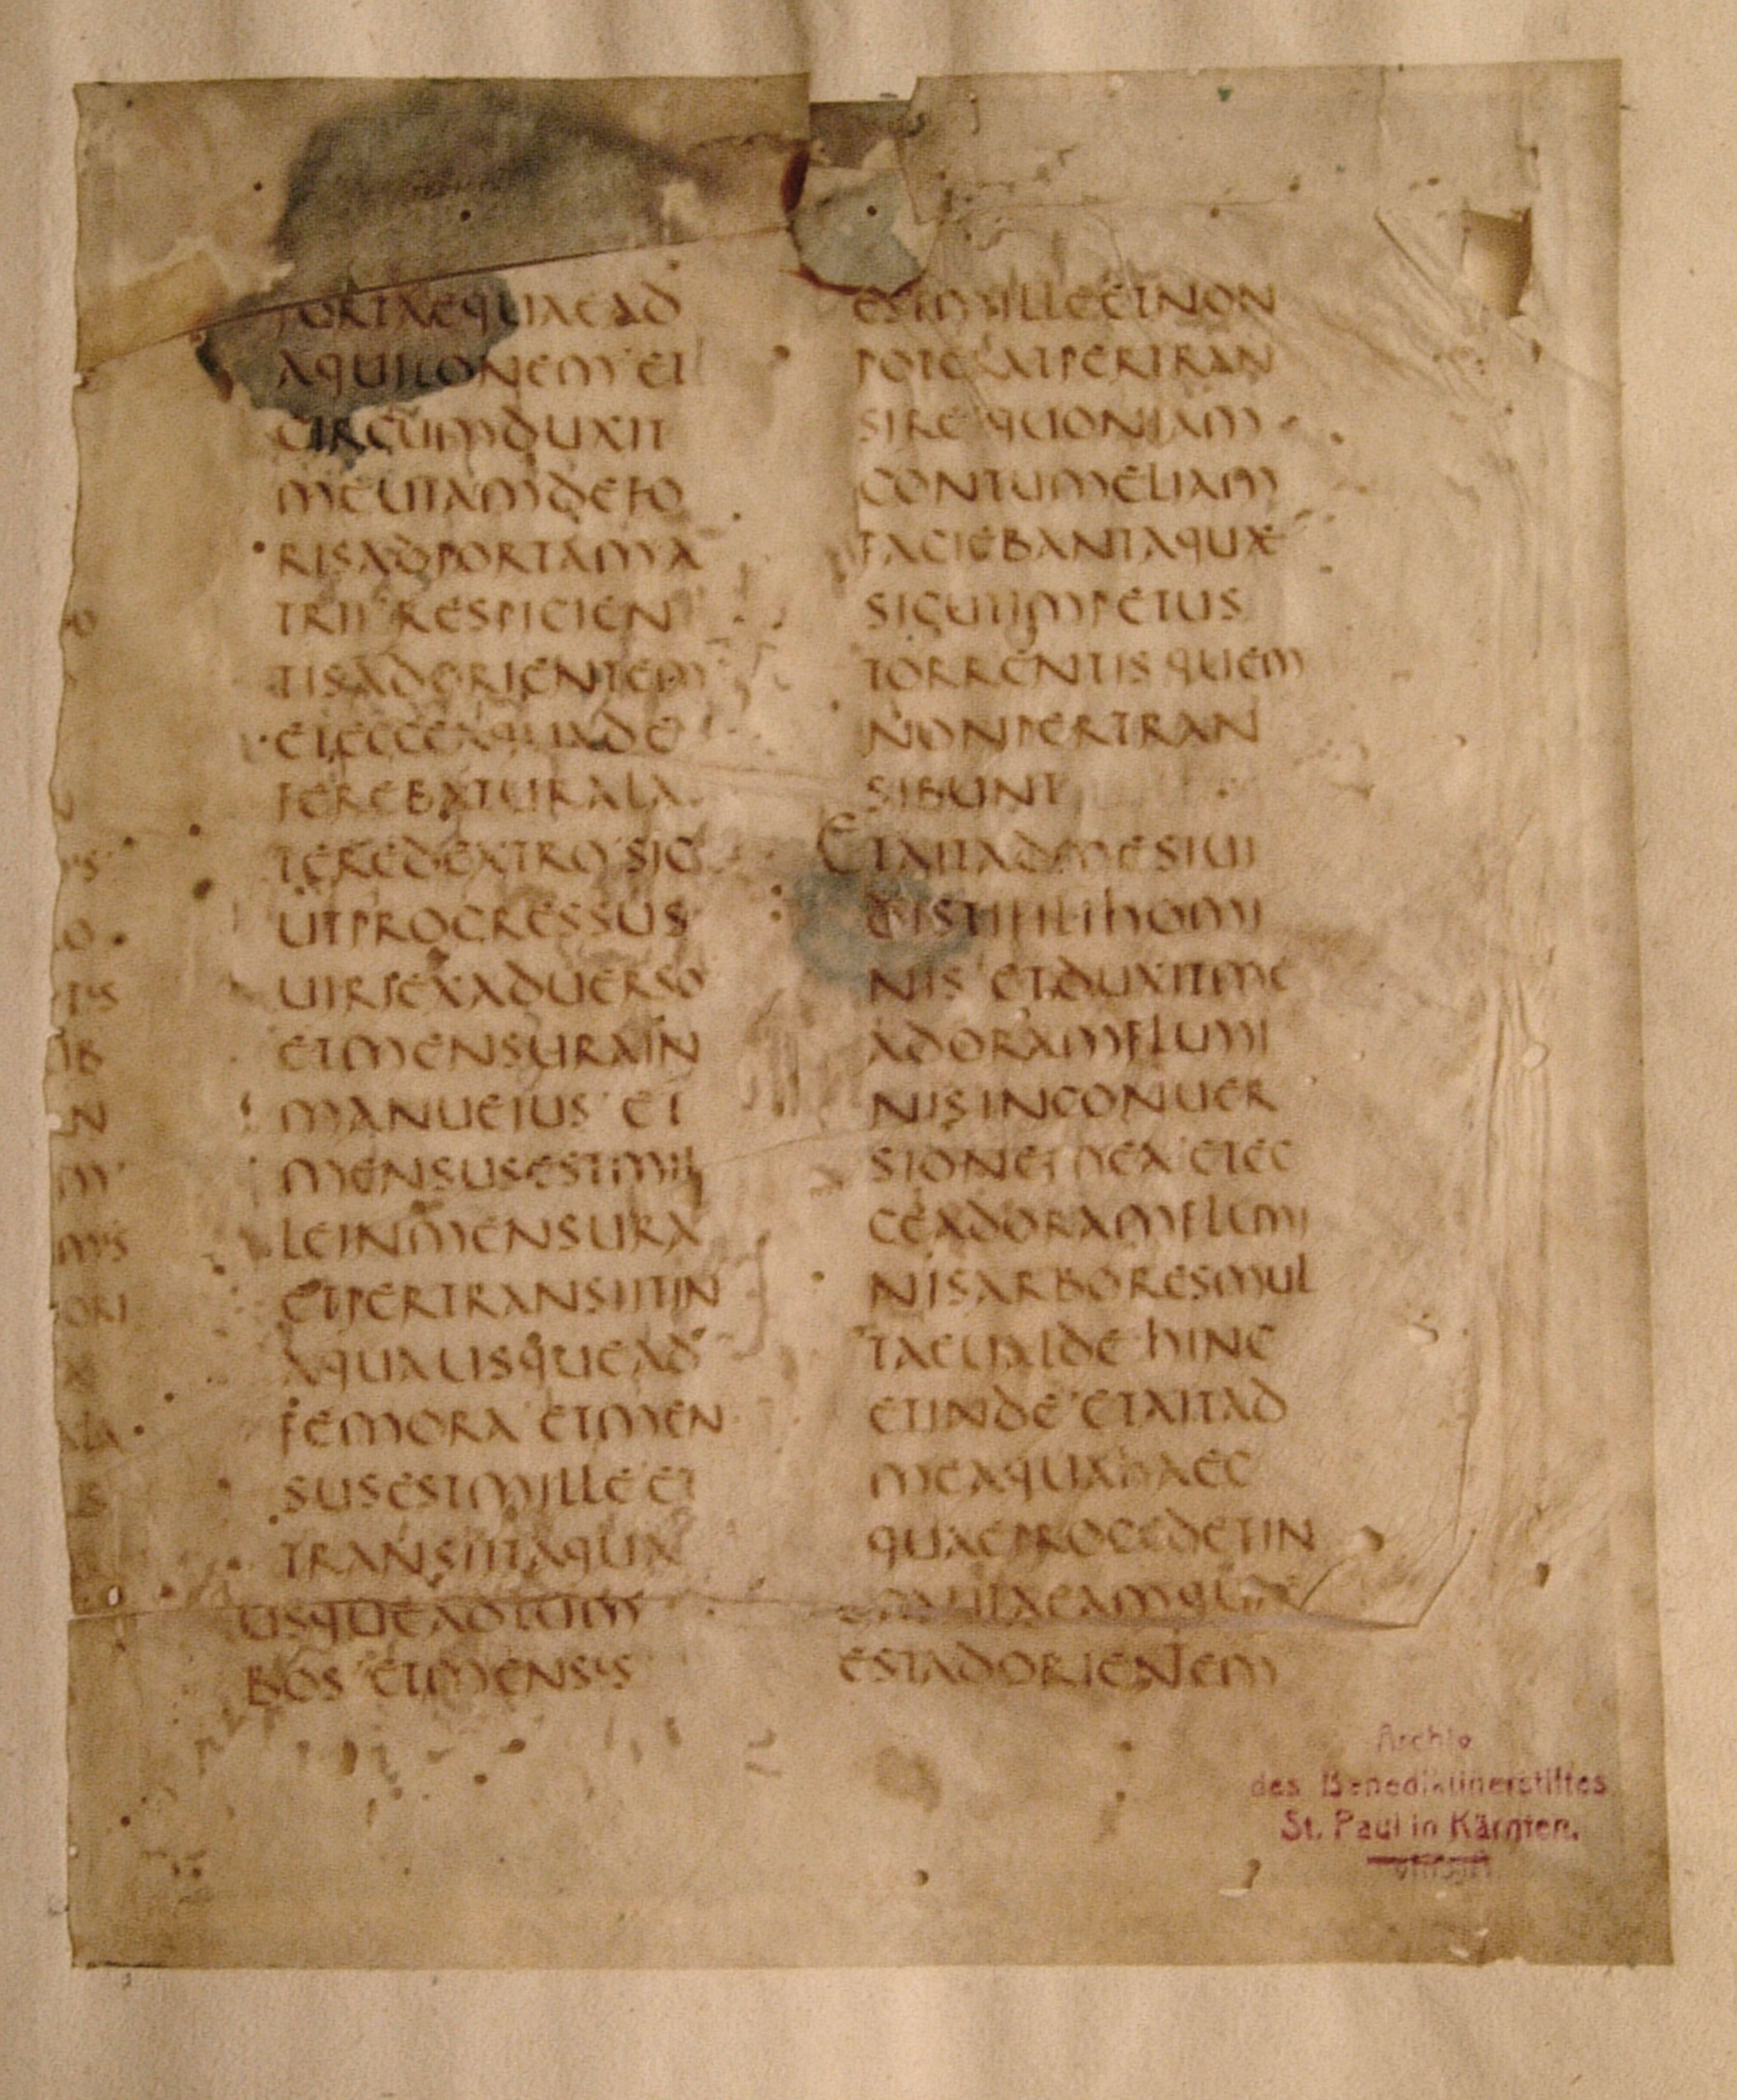 PORTAEQUAEAD
AQUILONEM ET
CIRCUMDUXIT
MEUITAMDEFO
RISADPORTAMA
TRII RESPICIEN
TISADORIENTEM
ETECCEAQUADE
FEREBATURALA
TEREDEXTRO SIC
UTPROGRESSUS
UIRIEXADUERSO
ETMENSURAIN
MANUEIUS ET
MENSUSESTMIL
LEINMENSURA
ETPERTRANSIITIN
AQUAUSQUEAD
FEMORA ETMEN
SUSESTMILLE ET
TRANSIITAQUA
USQUEADLUM
BOS ETMENSUS
ESTMILLEETNON
POTERATPERTRAN
SIRE QUONIAM
CONTUMELIAM
FACIEBANTAQUAE
SICUTIMPETUS
TORRENTIS QUEM
NONPERTRAN
SIBUNT
ETAITADMESIUI
DISTIFILIHOMI
NIS ETDUXITME
ADORAMFLUMI
NISINCONUER
SIONEMEA ETEC
CEADORAMFLUMI
NISARBORESMUL
TAEUALDE HINC
ETINDE ETAITAD
MEAQUAHAEC
QUAEPROCEDETIN
ESTADORIENTEM
O
US
O
TS
IB
N
M
MS
ORI
X
ALA
S
Archiv
des Benediktinerstiftes
St. Paul in Kärnten.